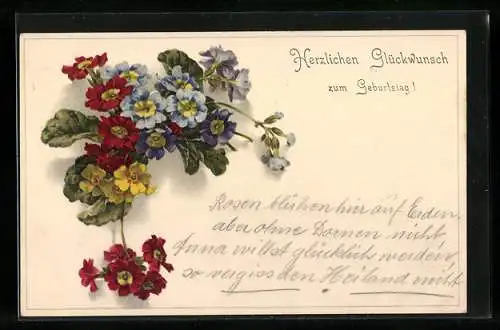 Herzlichen Glückwunsch
zum Geburtstag!
Rosen blühen hier auf Erden,
aber ohne Dornen nicht
Anna willst glücklich werden,
so vergiss den Heiland nicht